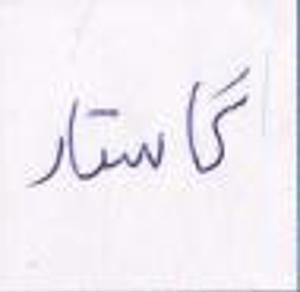 گاستار